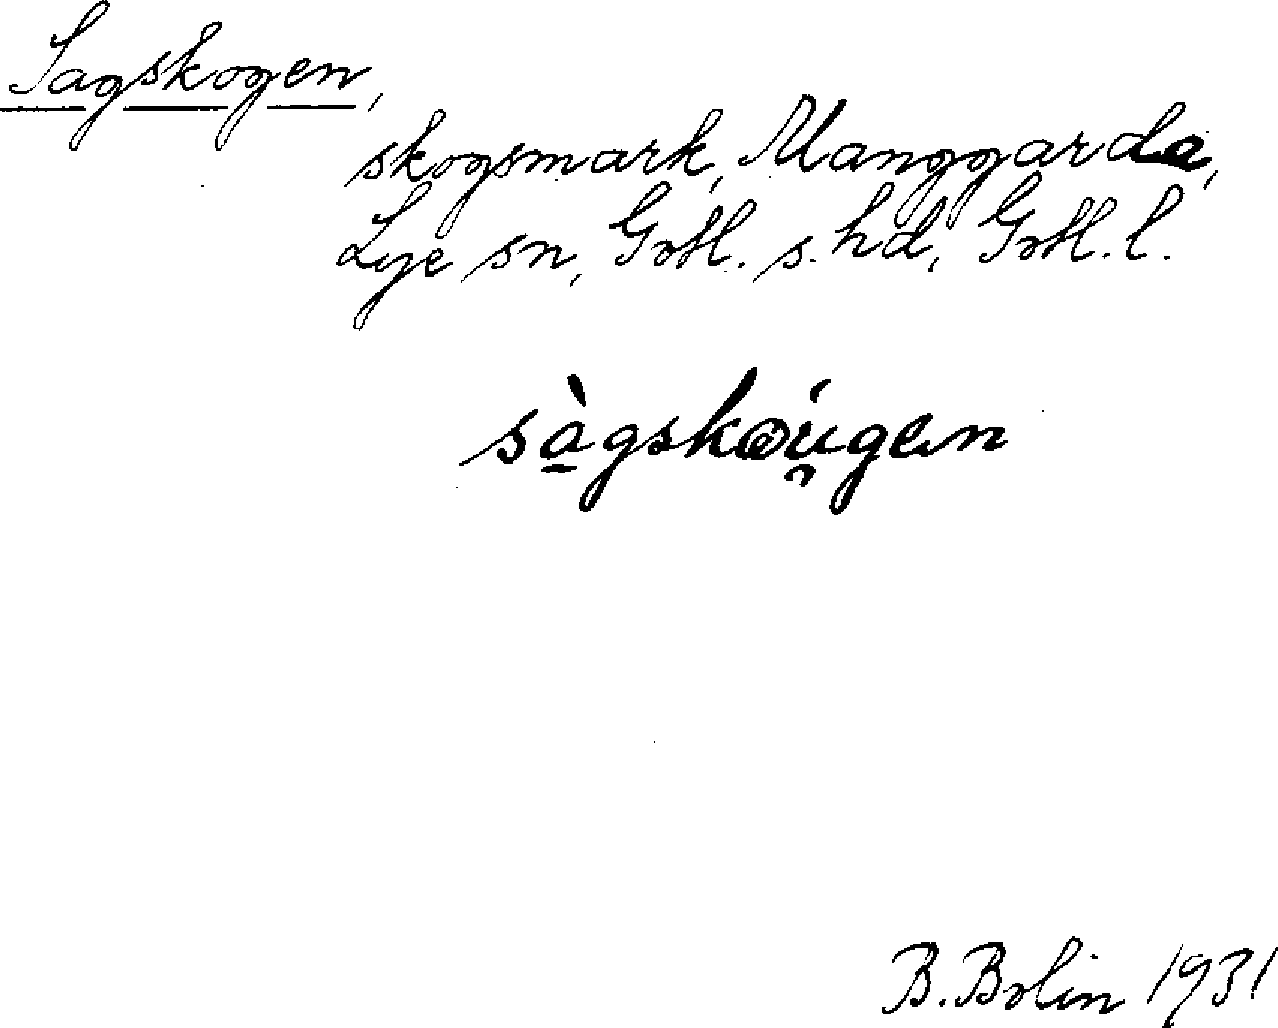 Sagskogen,
skogsmark, Manggarda,
Lye sn, Gotl. s. hd, Gotl. l.
sà̱gskωú̯gen
B. Bolin 1931